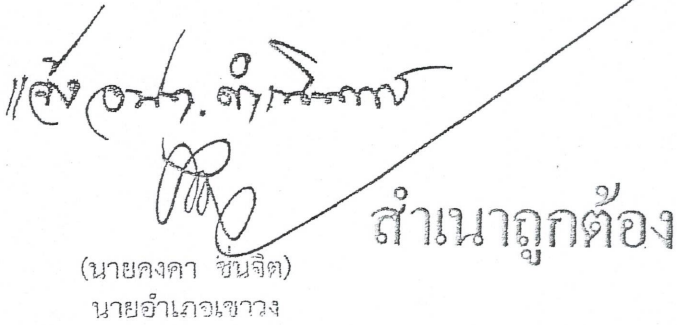 แจ้ง อปท. ดำเนินการ
สำเนาถูกต้อง
(นายคงคา ชื่นจิต)
นายอำเภอเขาวง